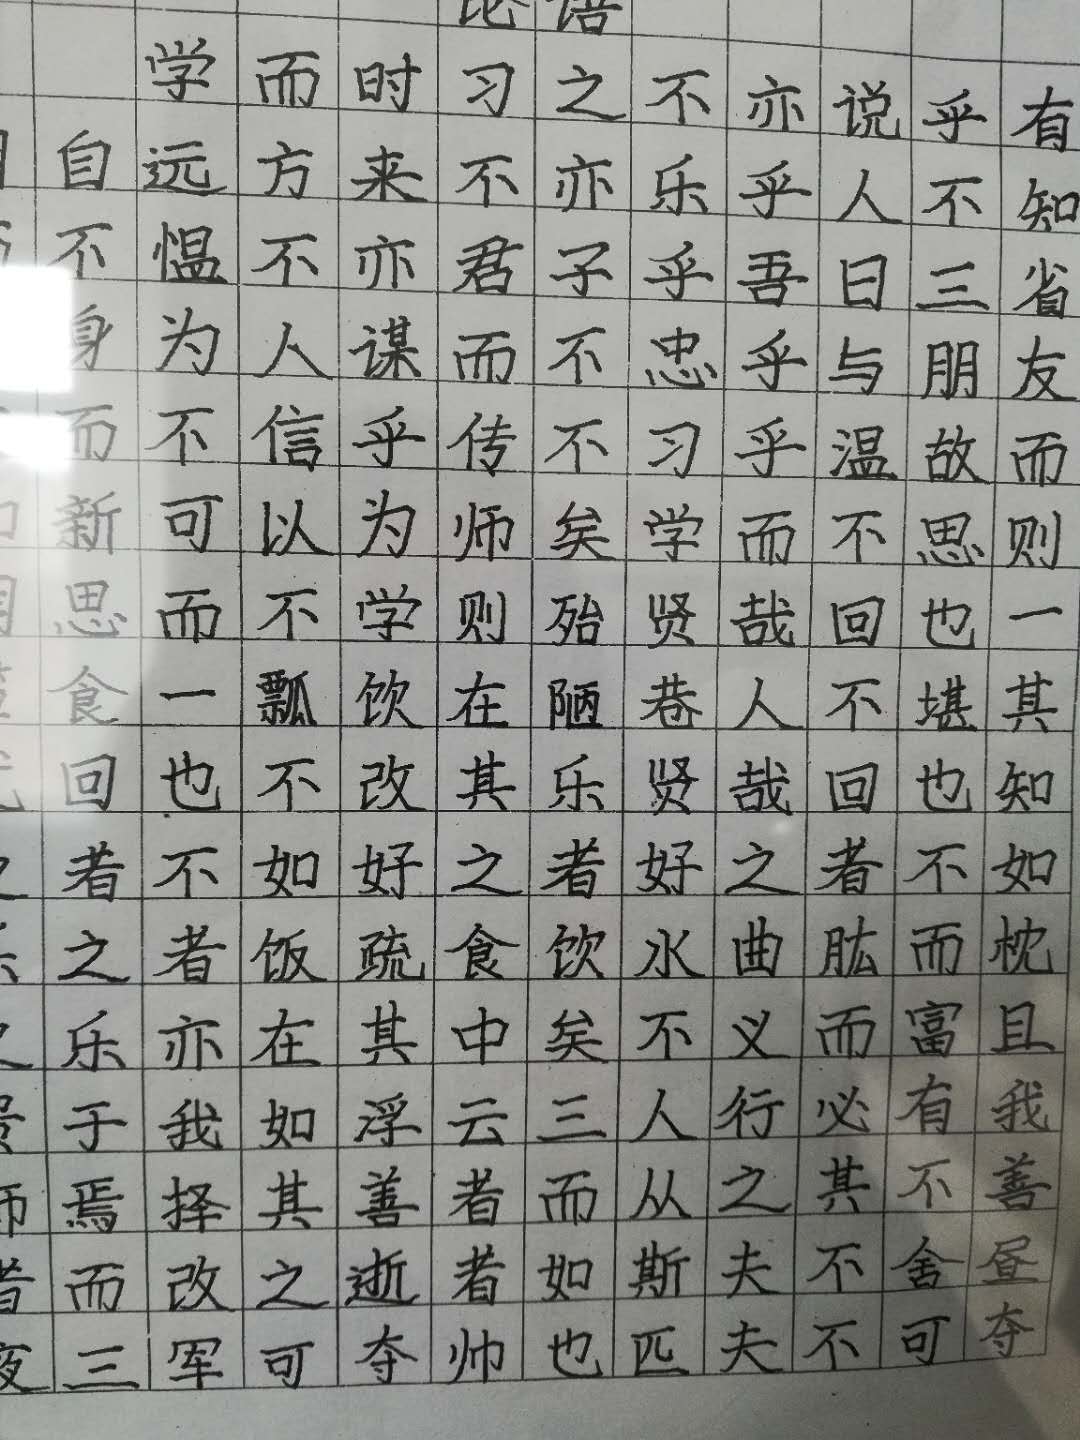 论语
学而时习之不亦说乎有
自远方来不亦乐乎人不知
不愠不亦君子乎吾日三省
身为人谋而不忠乎与朋友
而不信乎传不习乎温故而
新可以为师矣学而不思则
思而不学则殆贤哉回也一
食一瓢饮在陋巷人不堪其
回也不改其乐贤哉回也知
者不如好之者好之者不如
之者饭疏食饮水曲肱而枕
乐亦在其中矣不义而富且
于我如浮云三人行必有我
焉择其善者而从之其不善
而改之逝者如斯夫不舍昼
三军可夺帅也匹夫不可夺